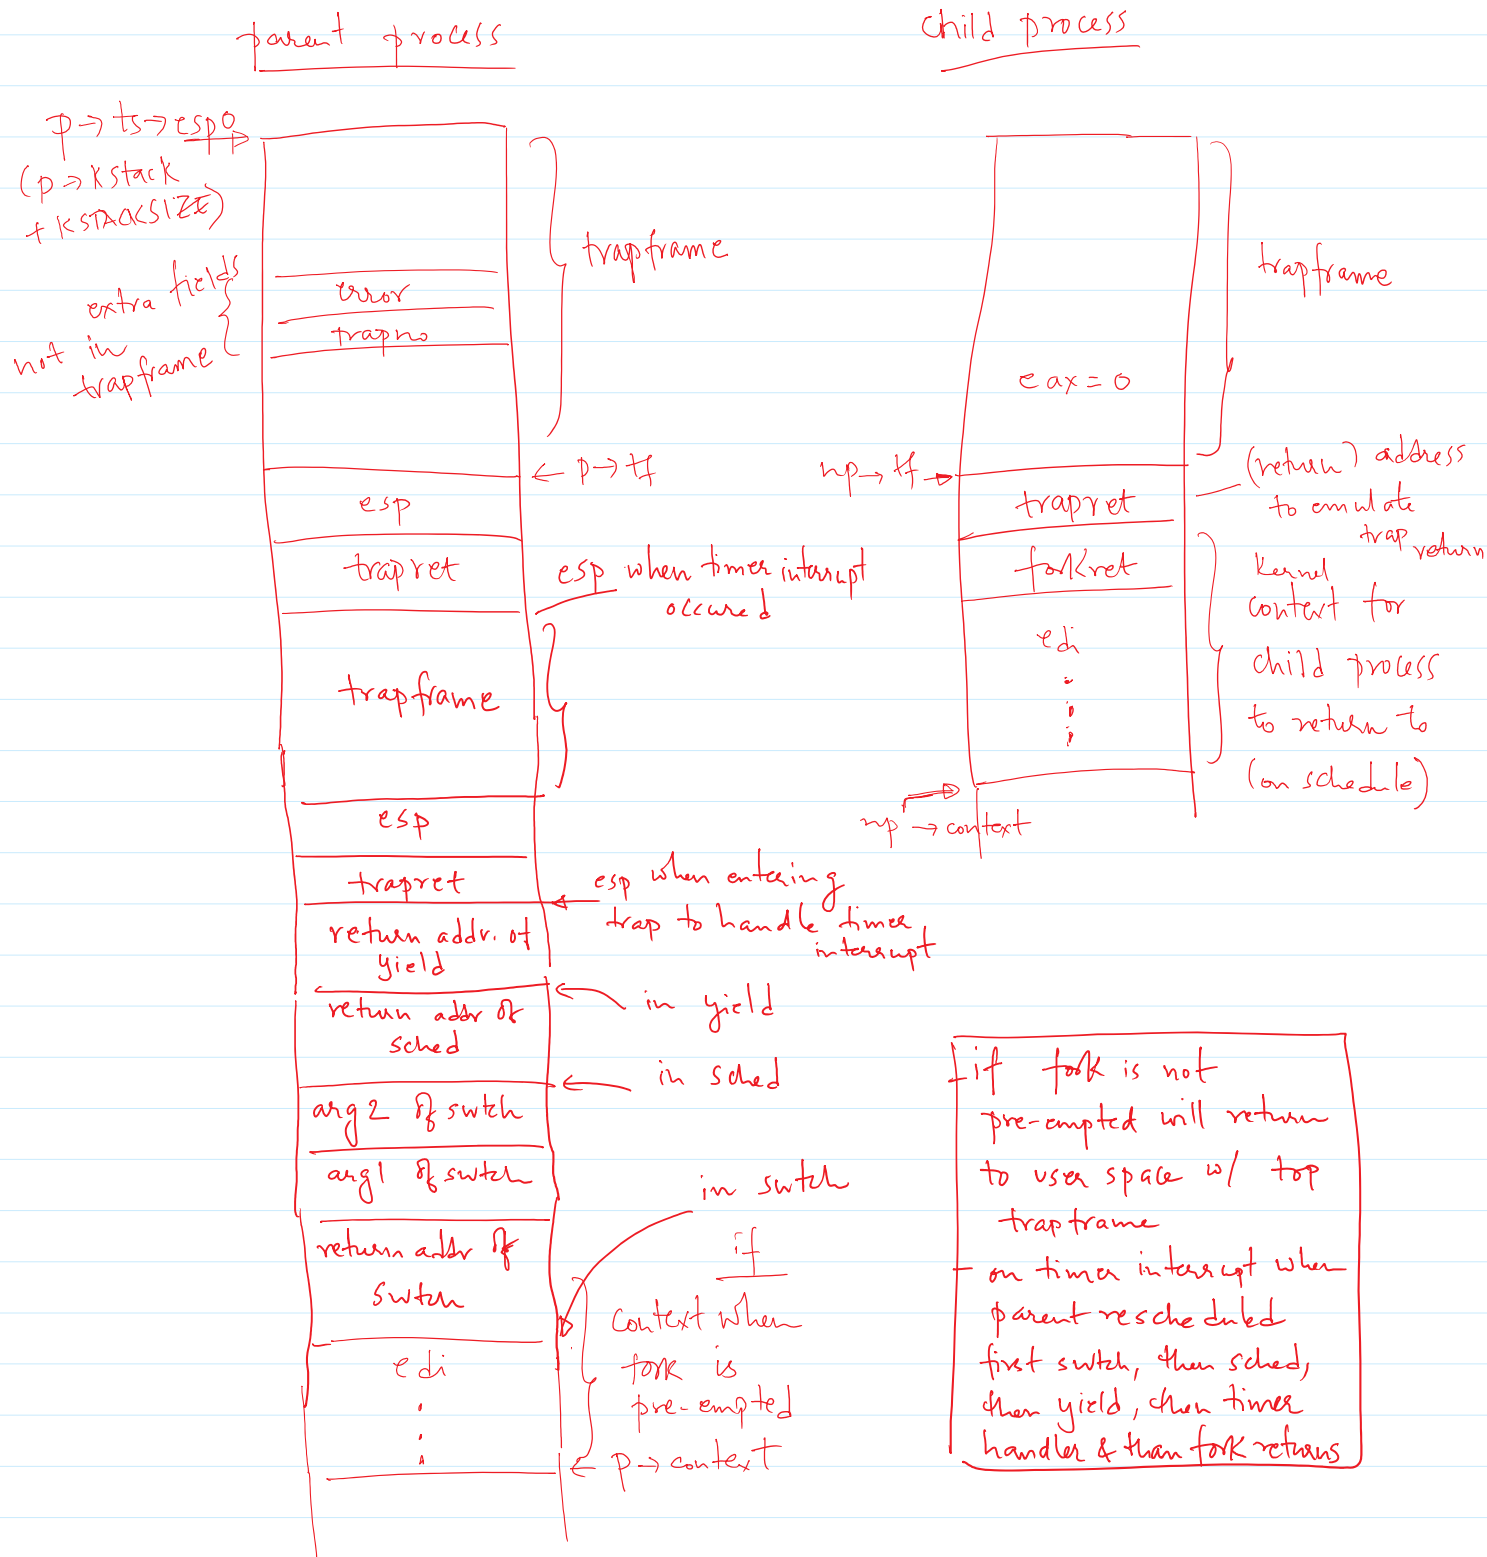 parent process
child process
p→ts→esp0
(p→kstack
+KSTACKSIZE)
trapframe
extra fields
not in
trapframe
error
trapno
← p→tf
esp
trapret
esp when timer interrupt
occured
trapframe
esp
trapret
esp when entering
trap to handle timer
interrupt
return addr. of
yield
in yield
return addr of
sched
in sched
arg2 of swtch
arg1 of swtch
in swtch
return addr of
swtch
if
context when
fork is
pre-empted
edi
← p→context
trapframe
eax=0
np→tf
trapret
(return) address
to emulate
trap return
forkret
edi
kernel
context for
child process
to return to
(on schedule)
np→context
- if fork is not
pre-empted will return
to user space w/ top
trapframe
- on timer interrupt when
parent rescheduled
first swtch, then sched,
then yield, then timer
handler & than fork returns